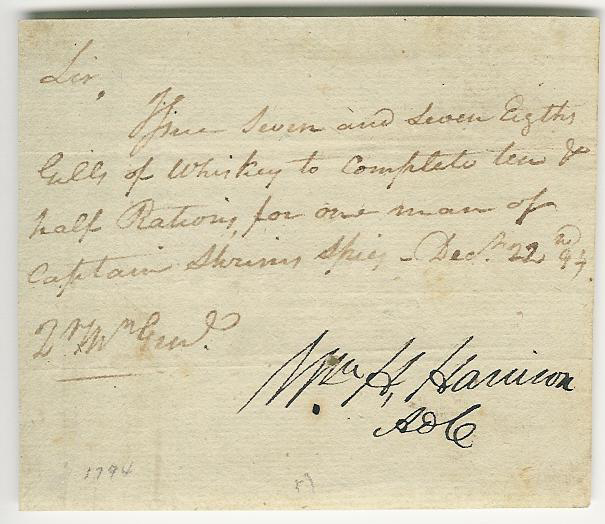 Sir,
Issue Seven and Seven Eigths
Gills of Whiskey to Complete ten &
half Rations, for one man of
Captain Shrims Spies - Decr. 22nd 94.
Qr. Mr. Genl.
Wm H, Harrison
AdC
1794